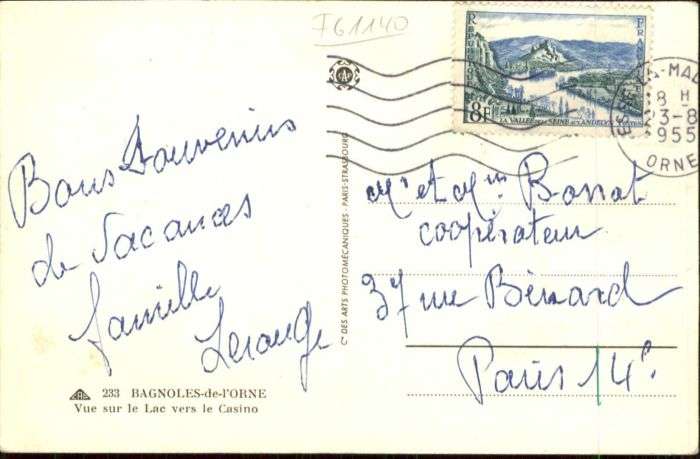 FG1140
REPUBLIQUE FRANÇAISE
8F
LA VALLEE DE LA SEINE AUX ANDELYS
LA-MAD
18 H
23-8
1955
ORNE
Bons Souvenirs
de Vacances
famille
Lerouge
Mr et Mme Bonnat
coopérateur
37 rue Bénard
Paris 14e.
CAP
Cie DES ARTS PHOTOMÉCANIQUES - PARIS-STRASBOURG
CAP 233 BAGNOLES-de-l'ORNE
Vue sur le Lac vers le Casino